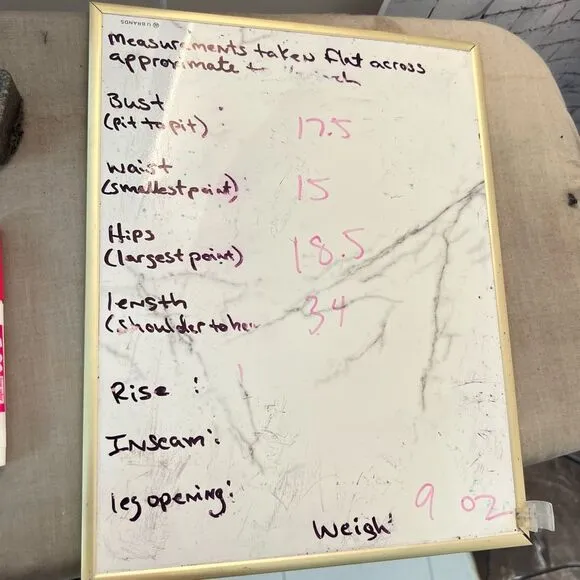 U BRANDS
Measurements taken flat across
approximate +
Bust :
(pit to pit) 17.5
waist
(smallest point) 15
Hips
(largest point) 18.5
length
(shoulder to 34
Rise :
Inseam :
leg opening :
9 oz
Weigh